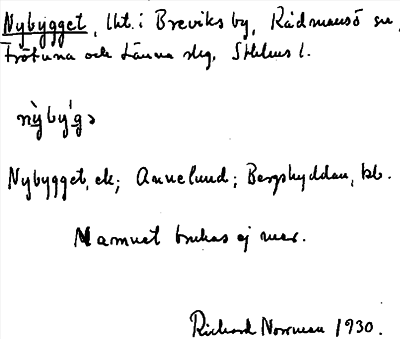 Nybygget, lht. i Breviks by, Rådmansö sn,
Frötuna och Länna slg, Sthlms l.
nỳby´gə
Nybygget, ek; Annelund; Bergshyddan, kb.
Namnet brukas ej mer.
Richard Norrman 1930.